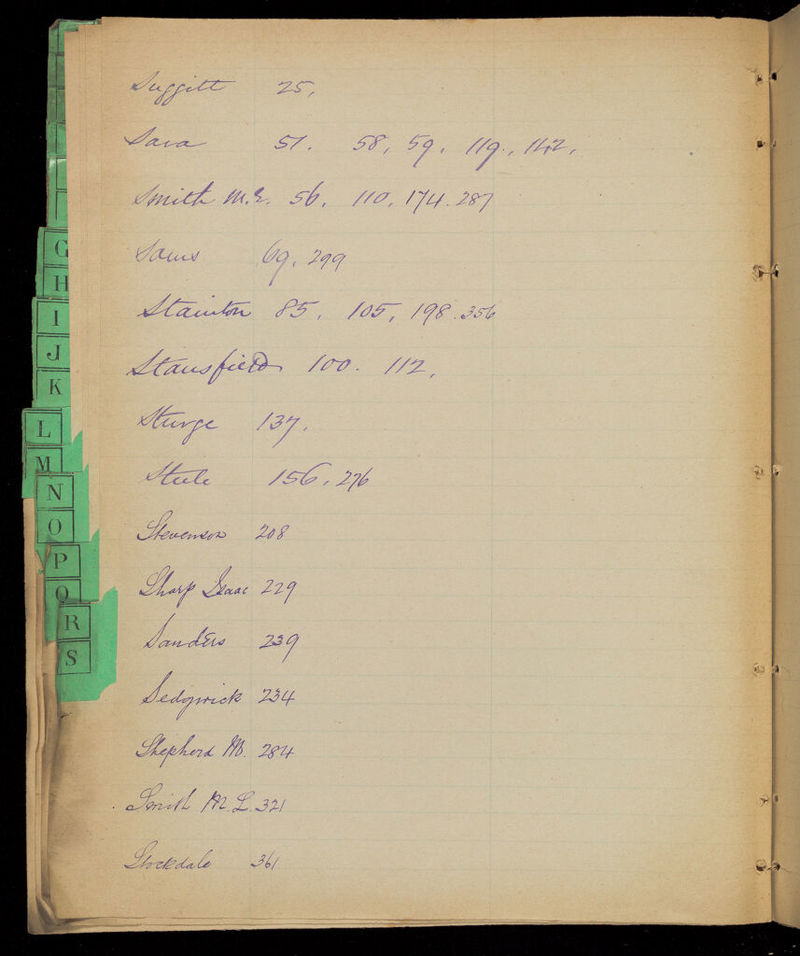 Suggitt 25,
Sara 51. 58, 59, 119., 142,
Smith M.E. 56, 110, 174. 287
Sams 69, 299
Stainton 85, 105, 198. 356
Stansfield 100. 112,
Sturge 137,
Steele 156, 276
Stevenson 208
Sharp Isaac 229
Sanders 239
Sedgwick 234
Shepherd M. 284
Smith M.L. 321
Stockdale 361
G
H
I
J
K
L
M
N
O
P
Q
R
S